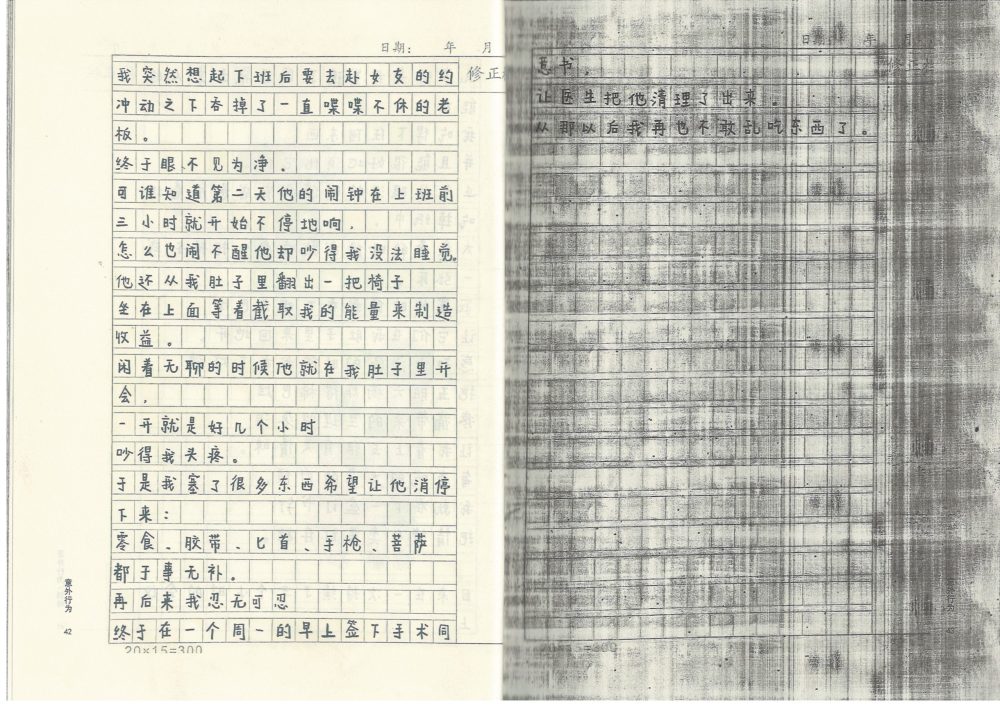 日期： 年 月
修正
我突然想起下班后要去赴女友的约
冲动之下吞掉了一直喋喋不休的老
板。
终于眼不见为净.
可谁知道第二天他的闹钟在上班前
三小时就开始不停地响.
怎么也闹不醒他却吵得我没法睡觉。
他还从我肚子里翻出一把椅子
坐在上面等着截取我的能量来制造
收益。
闲着无聊的时候他就在我肚子里开
会.
一开就是好几个小时
吵得我头疼。
于是我塞了很多东西希望让他消停
下来：
零食、胶带、匕首、手枪、菩萨
都于事无补。
再后来我忍无可忍
终于在一个周一的早上签下手术同
20×15=300
意外行为
42
日期 年 月
意书.
让医生把他清理了出来.
从那以后我再也不敢乱吃东西了.